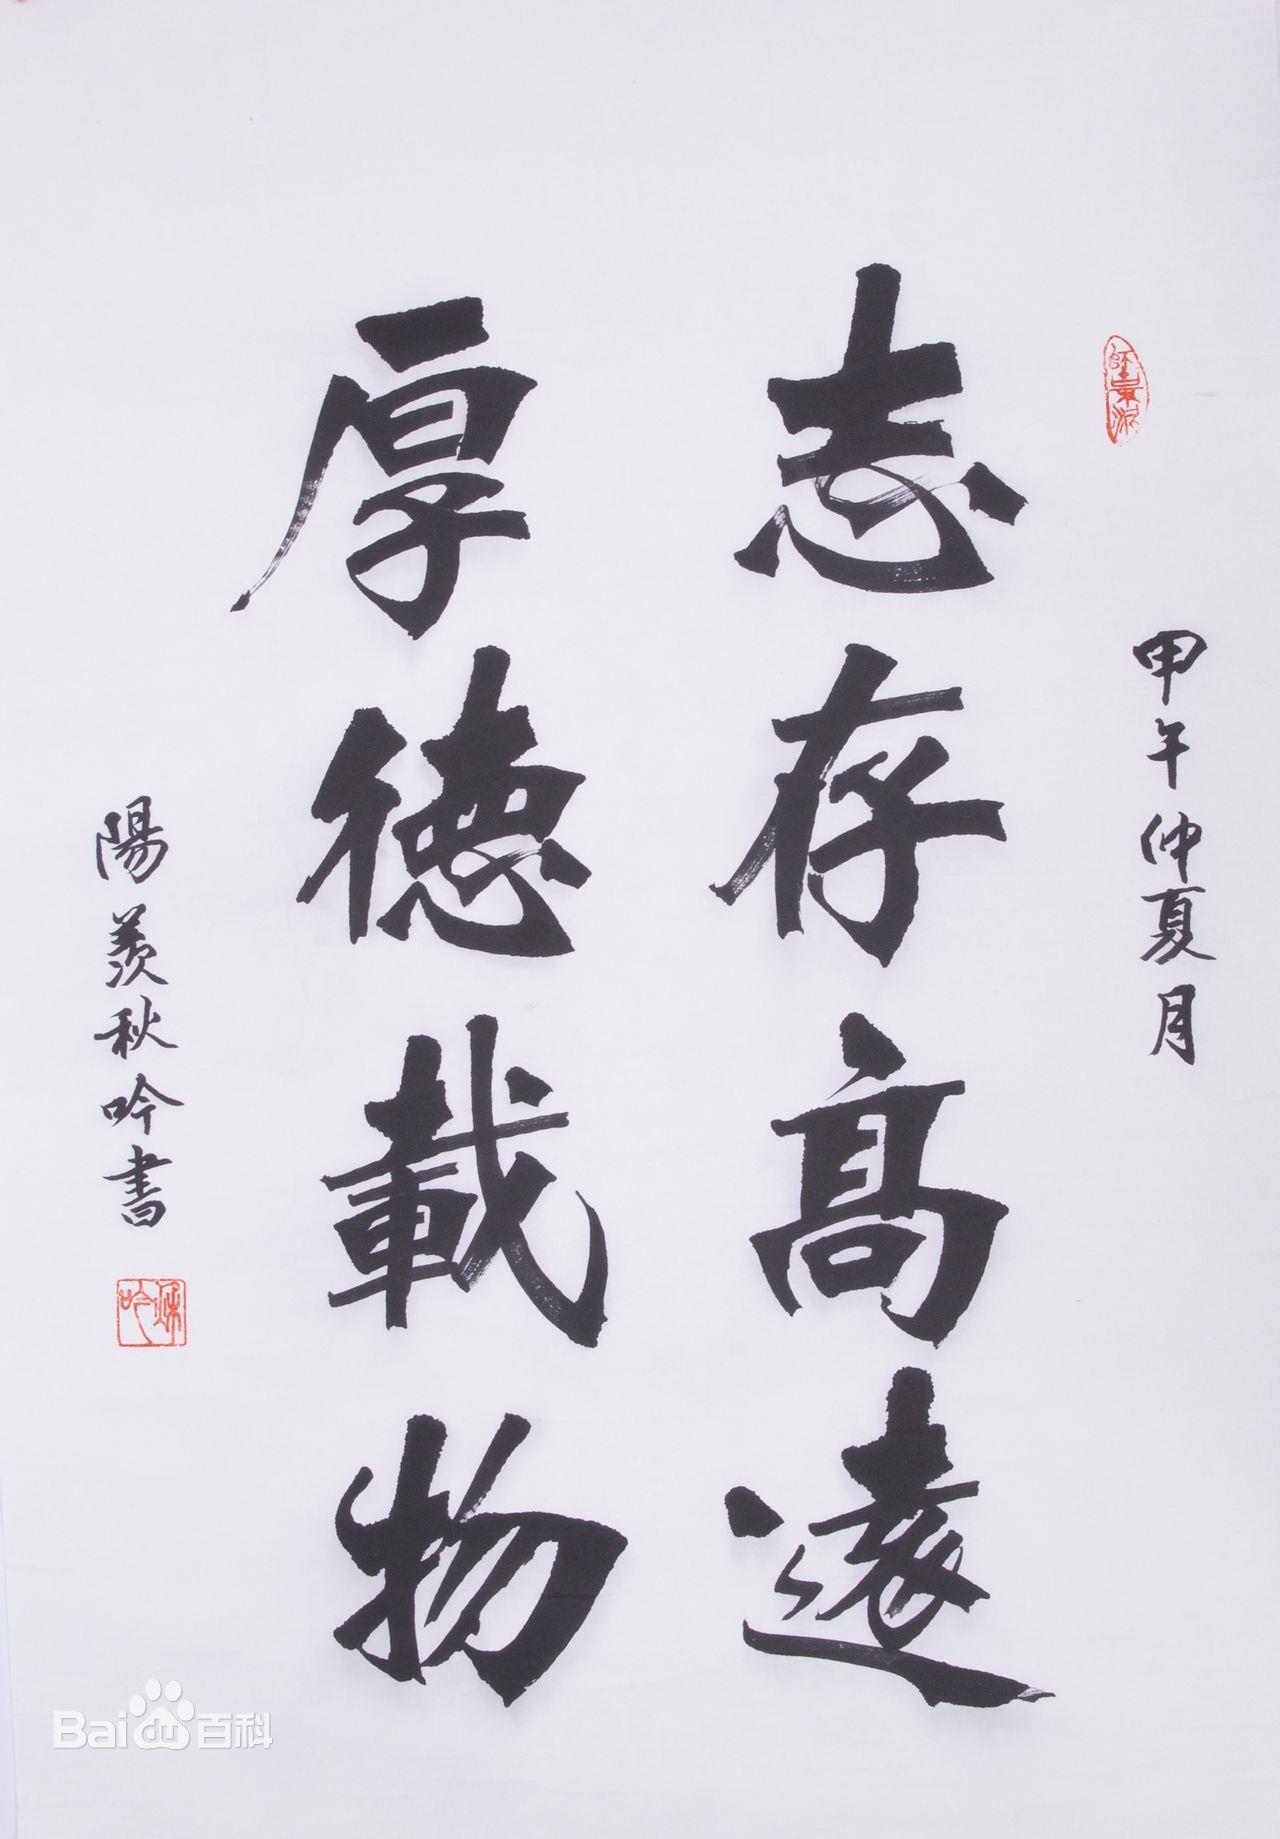 甲午仲夏月
志存高遠
厚德載物
陽羨秋吟書
秋吟
Bai百科